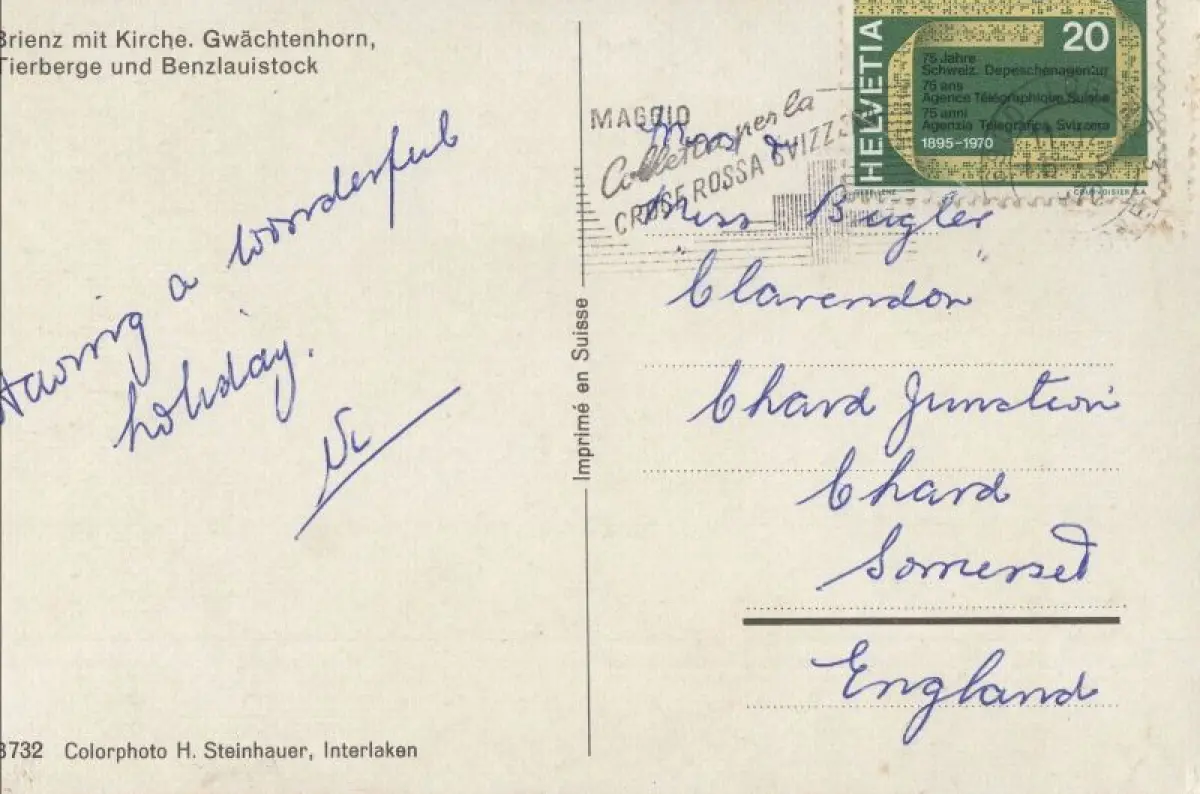 Brienz mit Kirche. Gwächtenhorn,
Tierberge und Benzlauistock
Having a wonderful
holiday.
Vi
8732 Colorphoto H. Steinhauer, Interlaken
Imprimé en Suisse
MAGGIO
Colletta per la
CROCE ROSSA SVIZZ
HELVETIA
20
75 Jahre
Schweiz. Depeschenagentur
75 ans
Agence Télégraphique Suisse
75 anni
Agenzia Telegrafica Svizzera
1895-1970
COURVOISIER S.A.
Mrs &
Miss Bugler
"Clarendon"
Chard Junction
Chard
Somerset
England